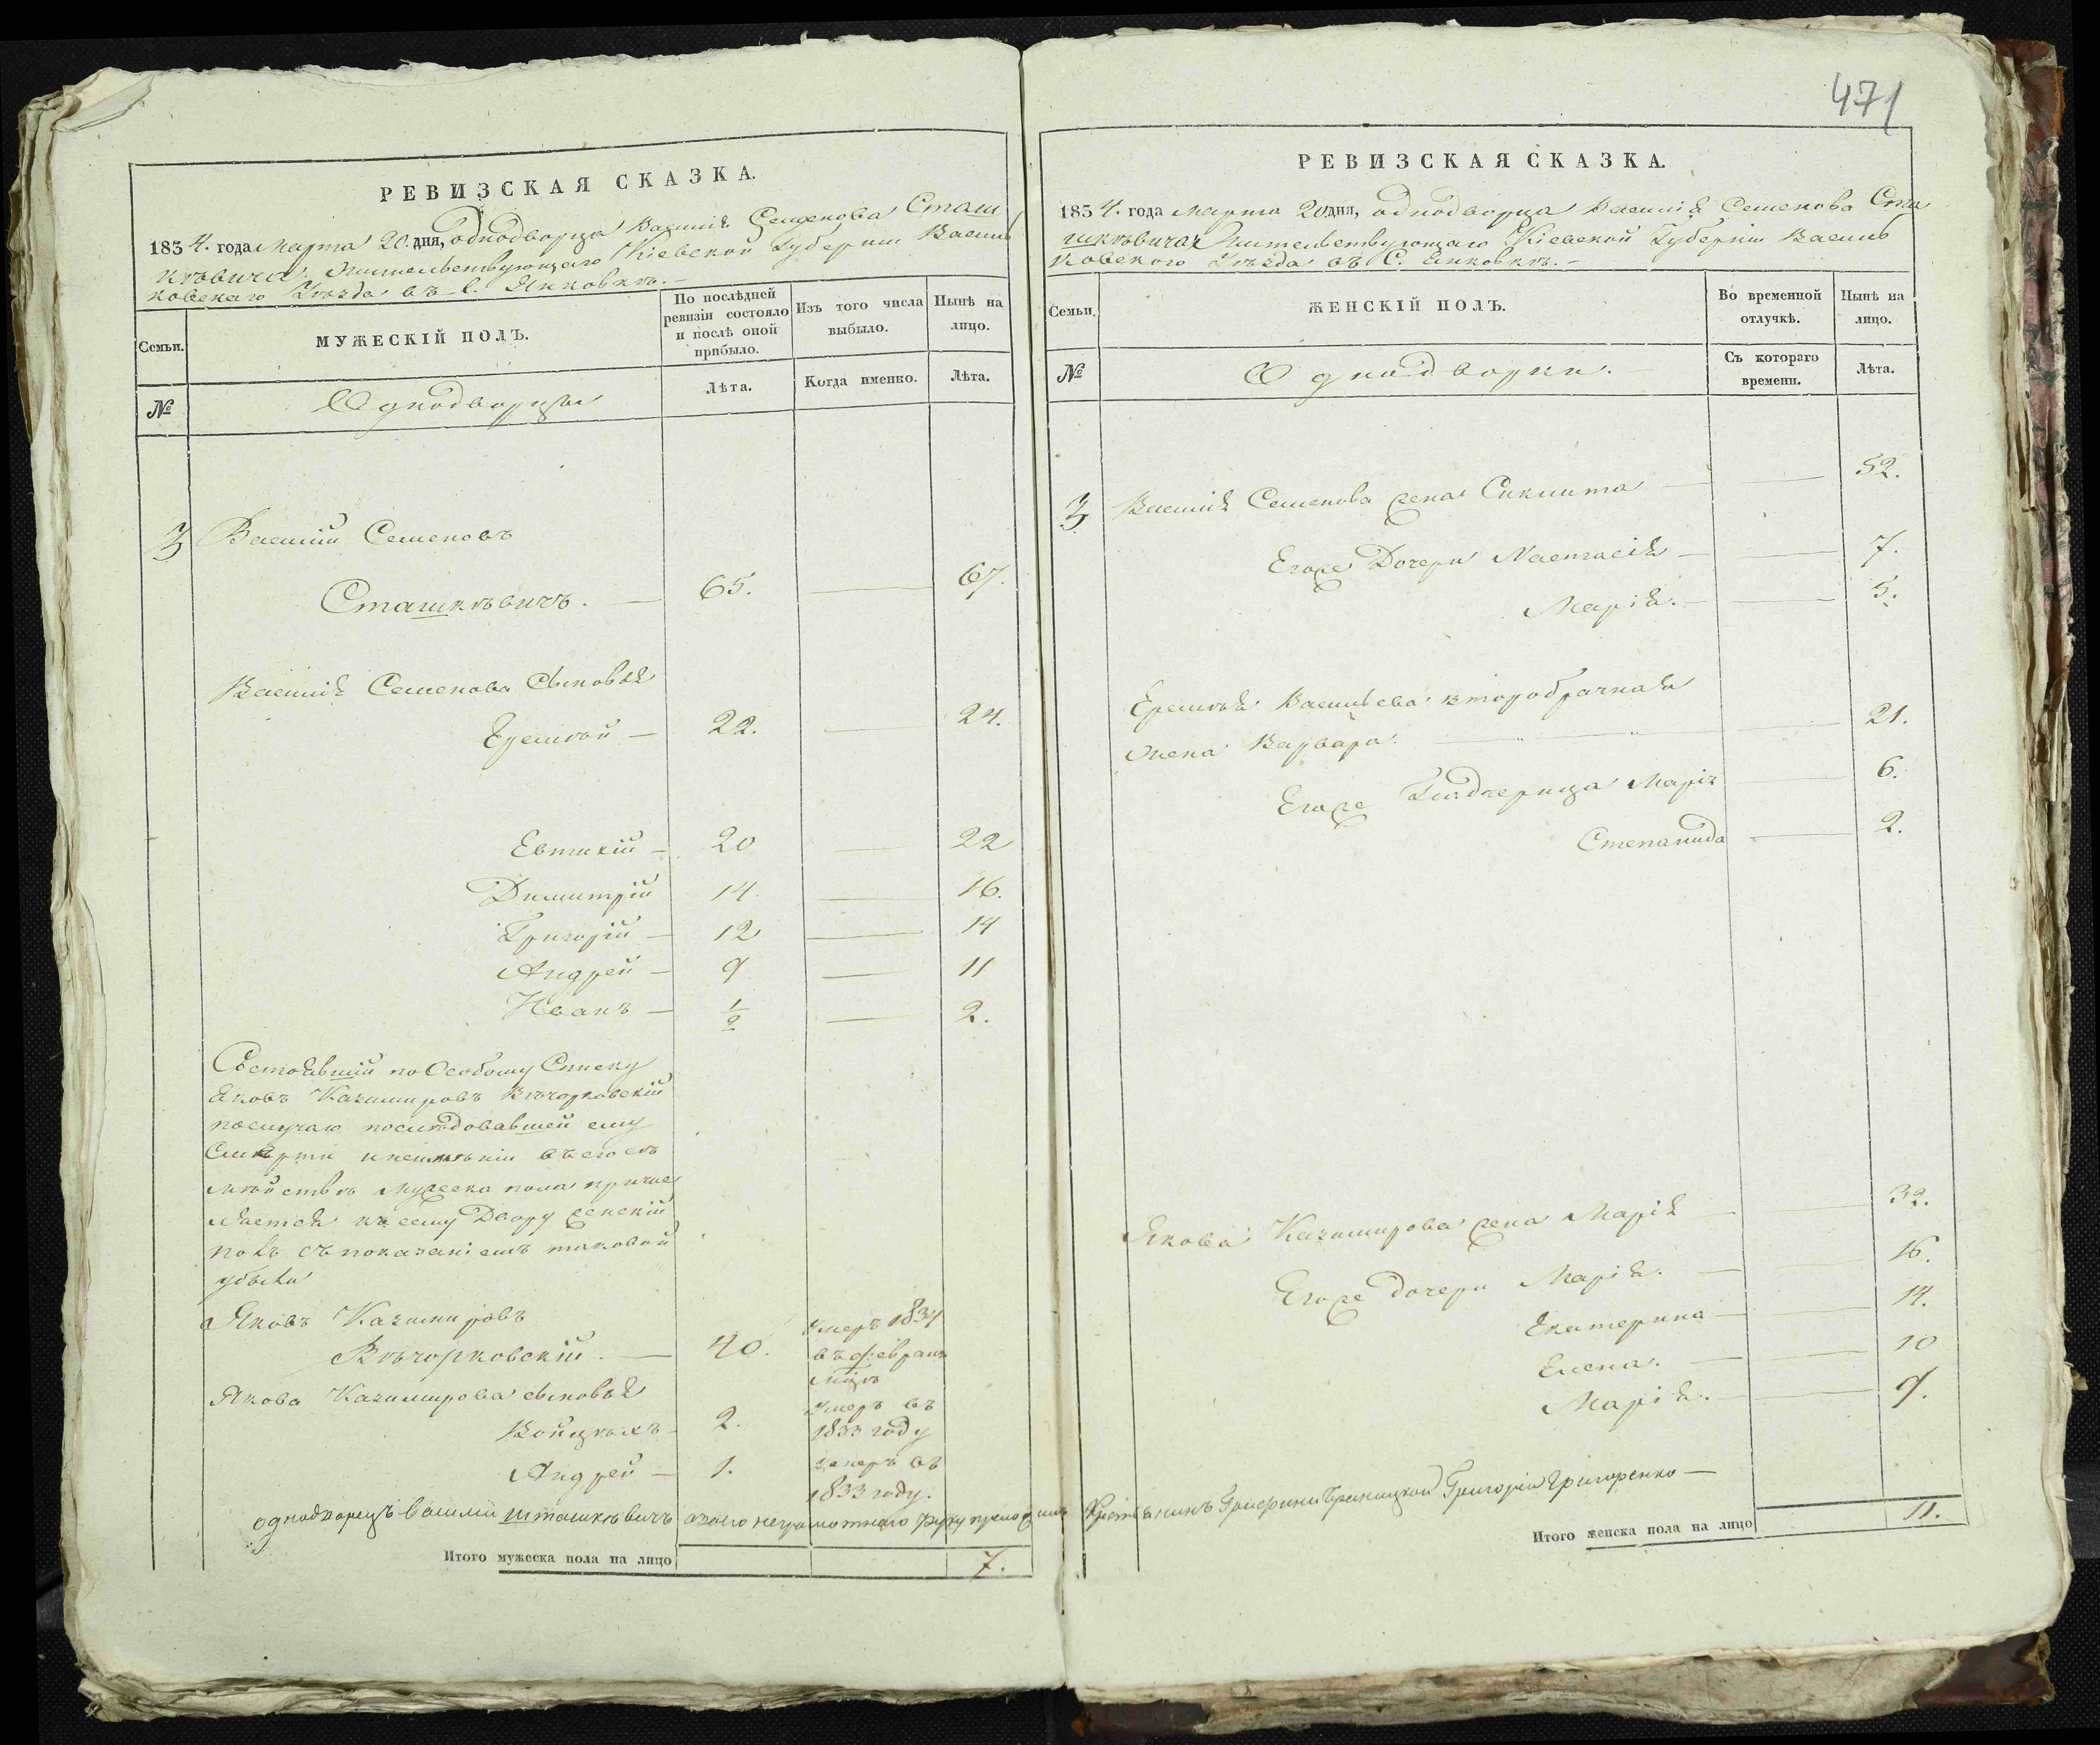 471
РЕВИЗСКАЯ СКАЗКА.
1834. года Марта 20 дня, однодворца Василія Семенова Сташ
кѣвича. Жительствующаго Кіевской Губерніи Василь
ковскаго Уѣзда въ с. Янковкѣ.
Семьи.
МУЖЕСКІЙ ПОЛЪ.
По послѣдней ревизіи состояло и послѣ оной прибыло.
Изъ того числа выбыло.
Нынѣ на лицо.
№
Однодворцы
Лѣта.
Когда именно.
Лѣта.
3 Василий Семеновъ
Сташкѣвичъ. — 65. — 67.
Василія Семенова сыновья
Еремѣй — 22. — 24.
Евтихій — 20 — 22
Димитрій 14. — 16.
Григорій — 12 — 14
Андрей — 9 — 11
Иванъ — 1/2 — 2.
Состоявшій по Особому Списку
Яковъ Казимировъ Вѣчорковскій
послучаю последовавшей ему
Смерти инеимѣніи въ его се
мѣйствѣ Мужеска пола причис
ляется къ сему Двору женскій
полъ съ показаніемъ таковой
убыли
Яковъ Казимировъ
Вѣчорковскій. — 40. Умеръ 1834
въ февралѣ
мцѣ
Якова Казимирова сыновья
Войцѣхъ — 2. Умеръ въ
1833 году
Андрей — 1. Умеръ въ
1833 году.
однодворецъ Василий Шташкѣвичъ а заего неграмотнаго руку приложилъ
Итого мужеска пола на лицо 7.
РЕВИЗСКАЯ СКАЗКА.
1834. года Марта 20 дня, однодворца Василія Семенова Ста
шкѣвича Жительствующаго Кіевской Губерніи Василь
ковского Уѣзда въ С. Янковкѣ. —
Семьи.
ЖЕНСКІЙ ПОЛЪ.
Во временной отлучкѣ.
Нынѣ на лицо.
№
Однодворки. —
Съ котораго времени.
Лѣта.
3 Василія Семенова жена — 52.
Егоже Дочери Настасія — 7.
Марія. — 5.
Еремѣя Васильева второбрачная
жена Варвара. — 21.
Егоже Падчерица Марія — 6.
Степанида — 2.
Якова Казимирова жена Марія — 32.
Егоже дочери Марія. — 16.
Екатерина — 14.
Елена. — 10
Марія. — 9.
Крестьянинъ Графини Браницкой Григорій Григоренко —
Итого женска пола на лицо 11.